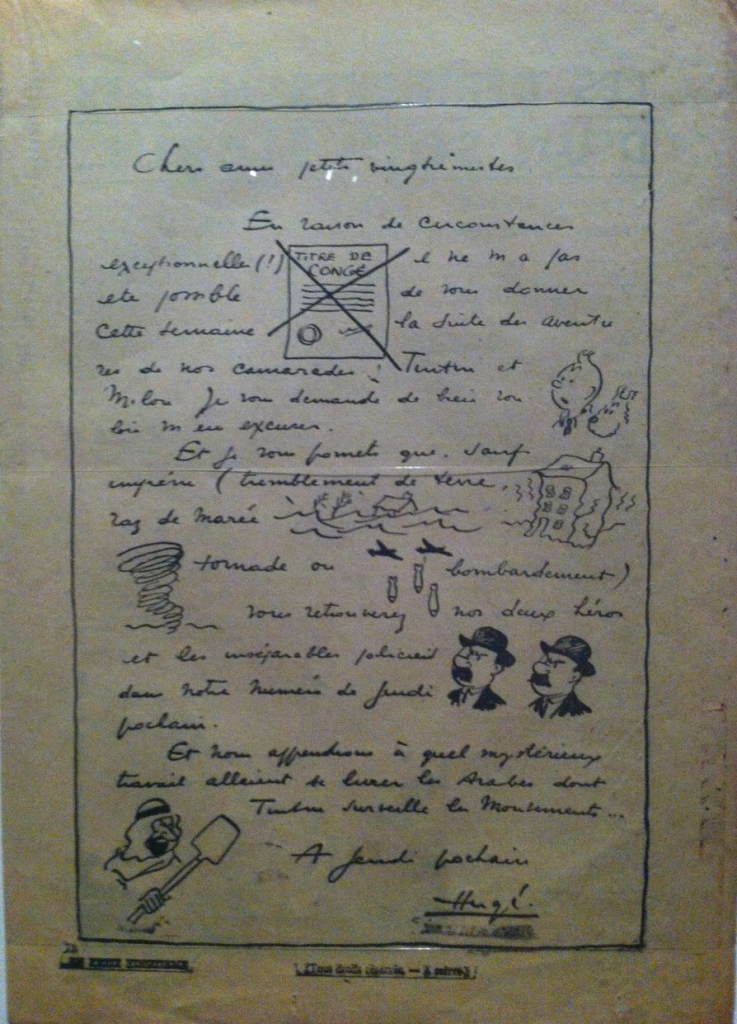 Chers amis petits vingtièmistes
En raison de circonstances
exceptionnelles (!) TITRE DE CONGÉ il ne m'a pas
été possible de vous donner
cette semaine la suite des aventu
res de nos camarades : Tintin et
Milou. Je vous demande de bien vou
loir m'en excuser.
Et je vous promets que, sauf
imprévu (tremblement de terre,
raz de marée
tornade ou bombardement)
vous retrouverez nos deux héros
et les inséparables policiers
dans notre numéro de Jeudi
prochain.
Et nous apprendrons à quel mystérieux
travail allaient se livrer les Arabes dont
Tintin surveille les mouvements...
A Jeudi prochain
Hergé.
(Tous droits réservés. — A suivre.)